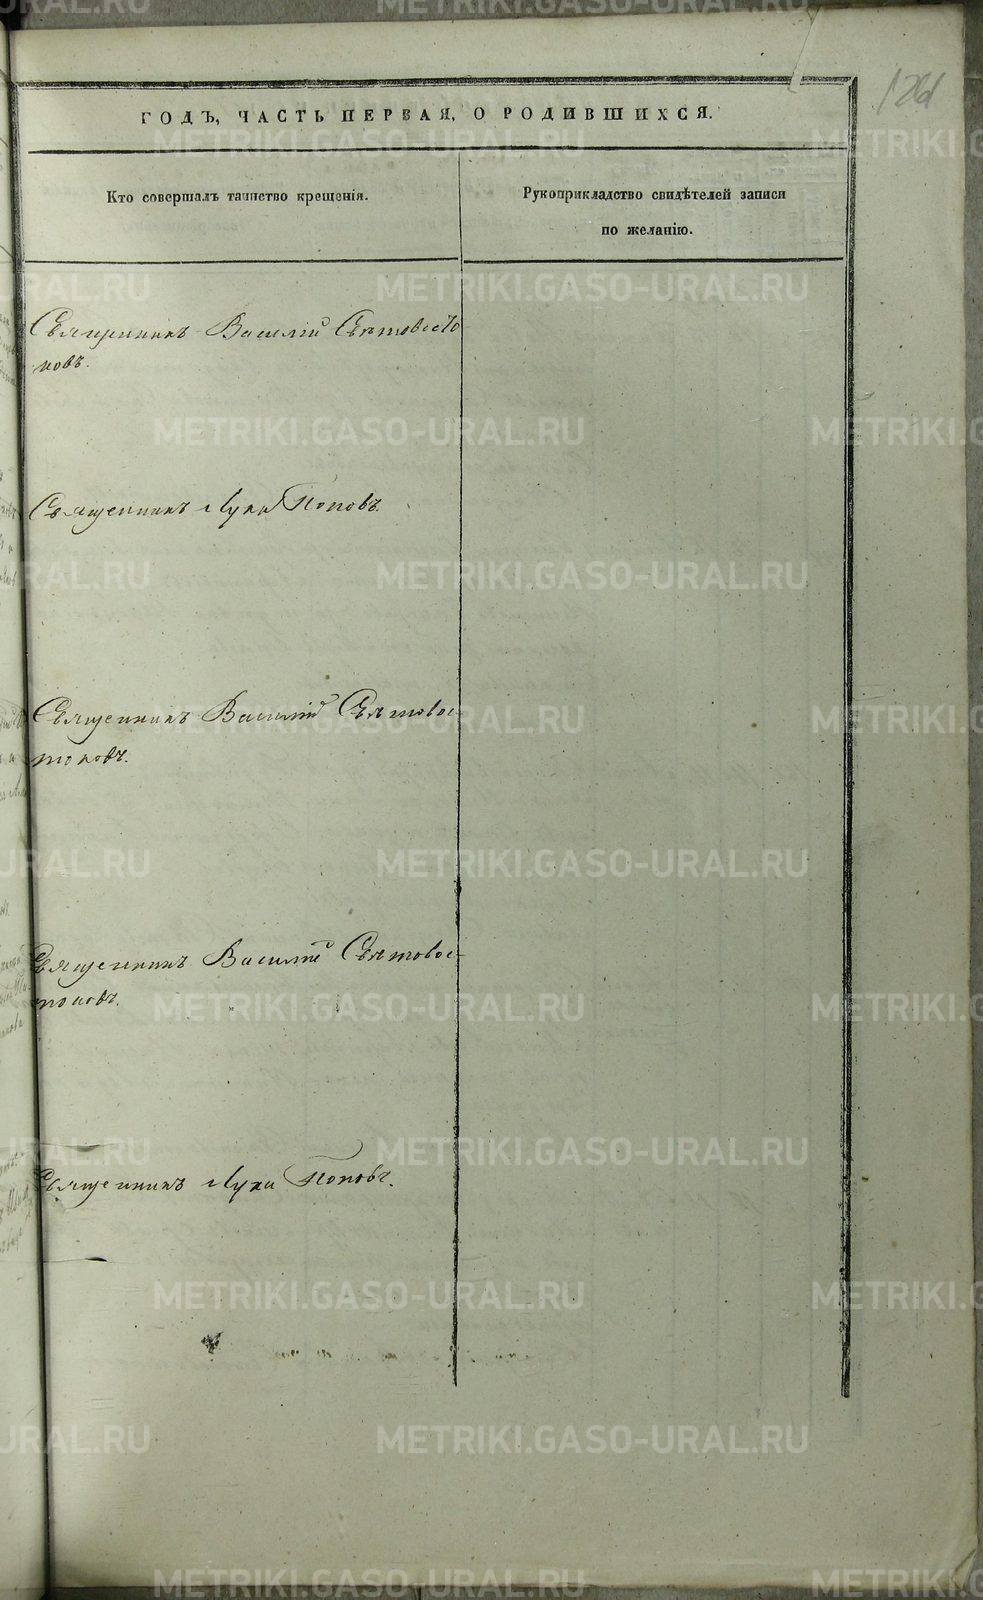 ГОДЪ, ЧАСТЬ ПЕРВАЯ, О РОДИВШИХСЯ.
Кто совершалъ таинство крещенія.
Рукоприкладство свидѣтелей записи
по желанію.
Священникъ Василій Свѣтовосто
ковъ.
Священникъ Лука Поповъ.
Священникъ Василій Свѣтовос-
токовъ.
Священникъ Василій Свѣтовос-
токовъ.
Священникъ Лука Поповъ.
METRIKI.GASO-URAL.RU